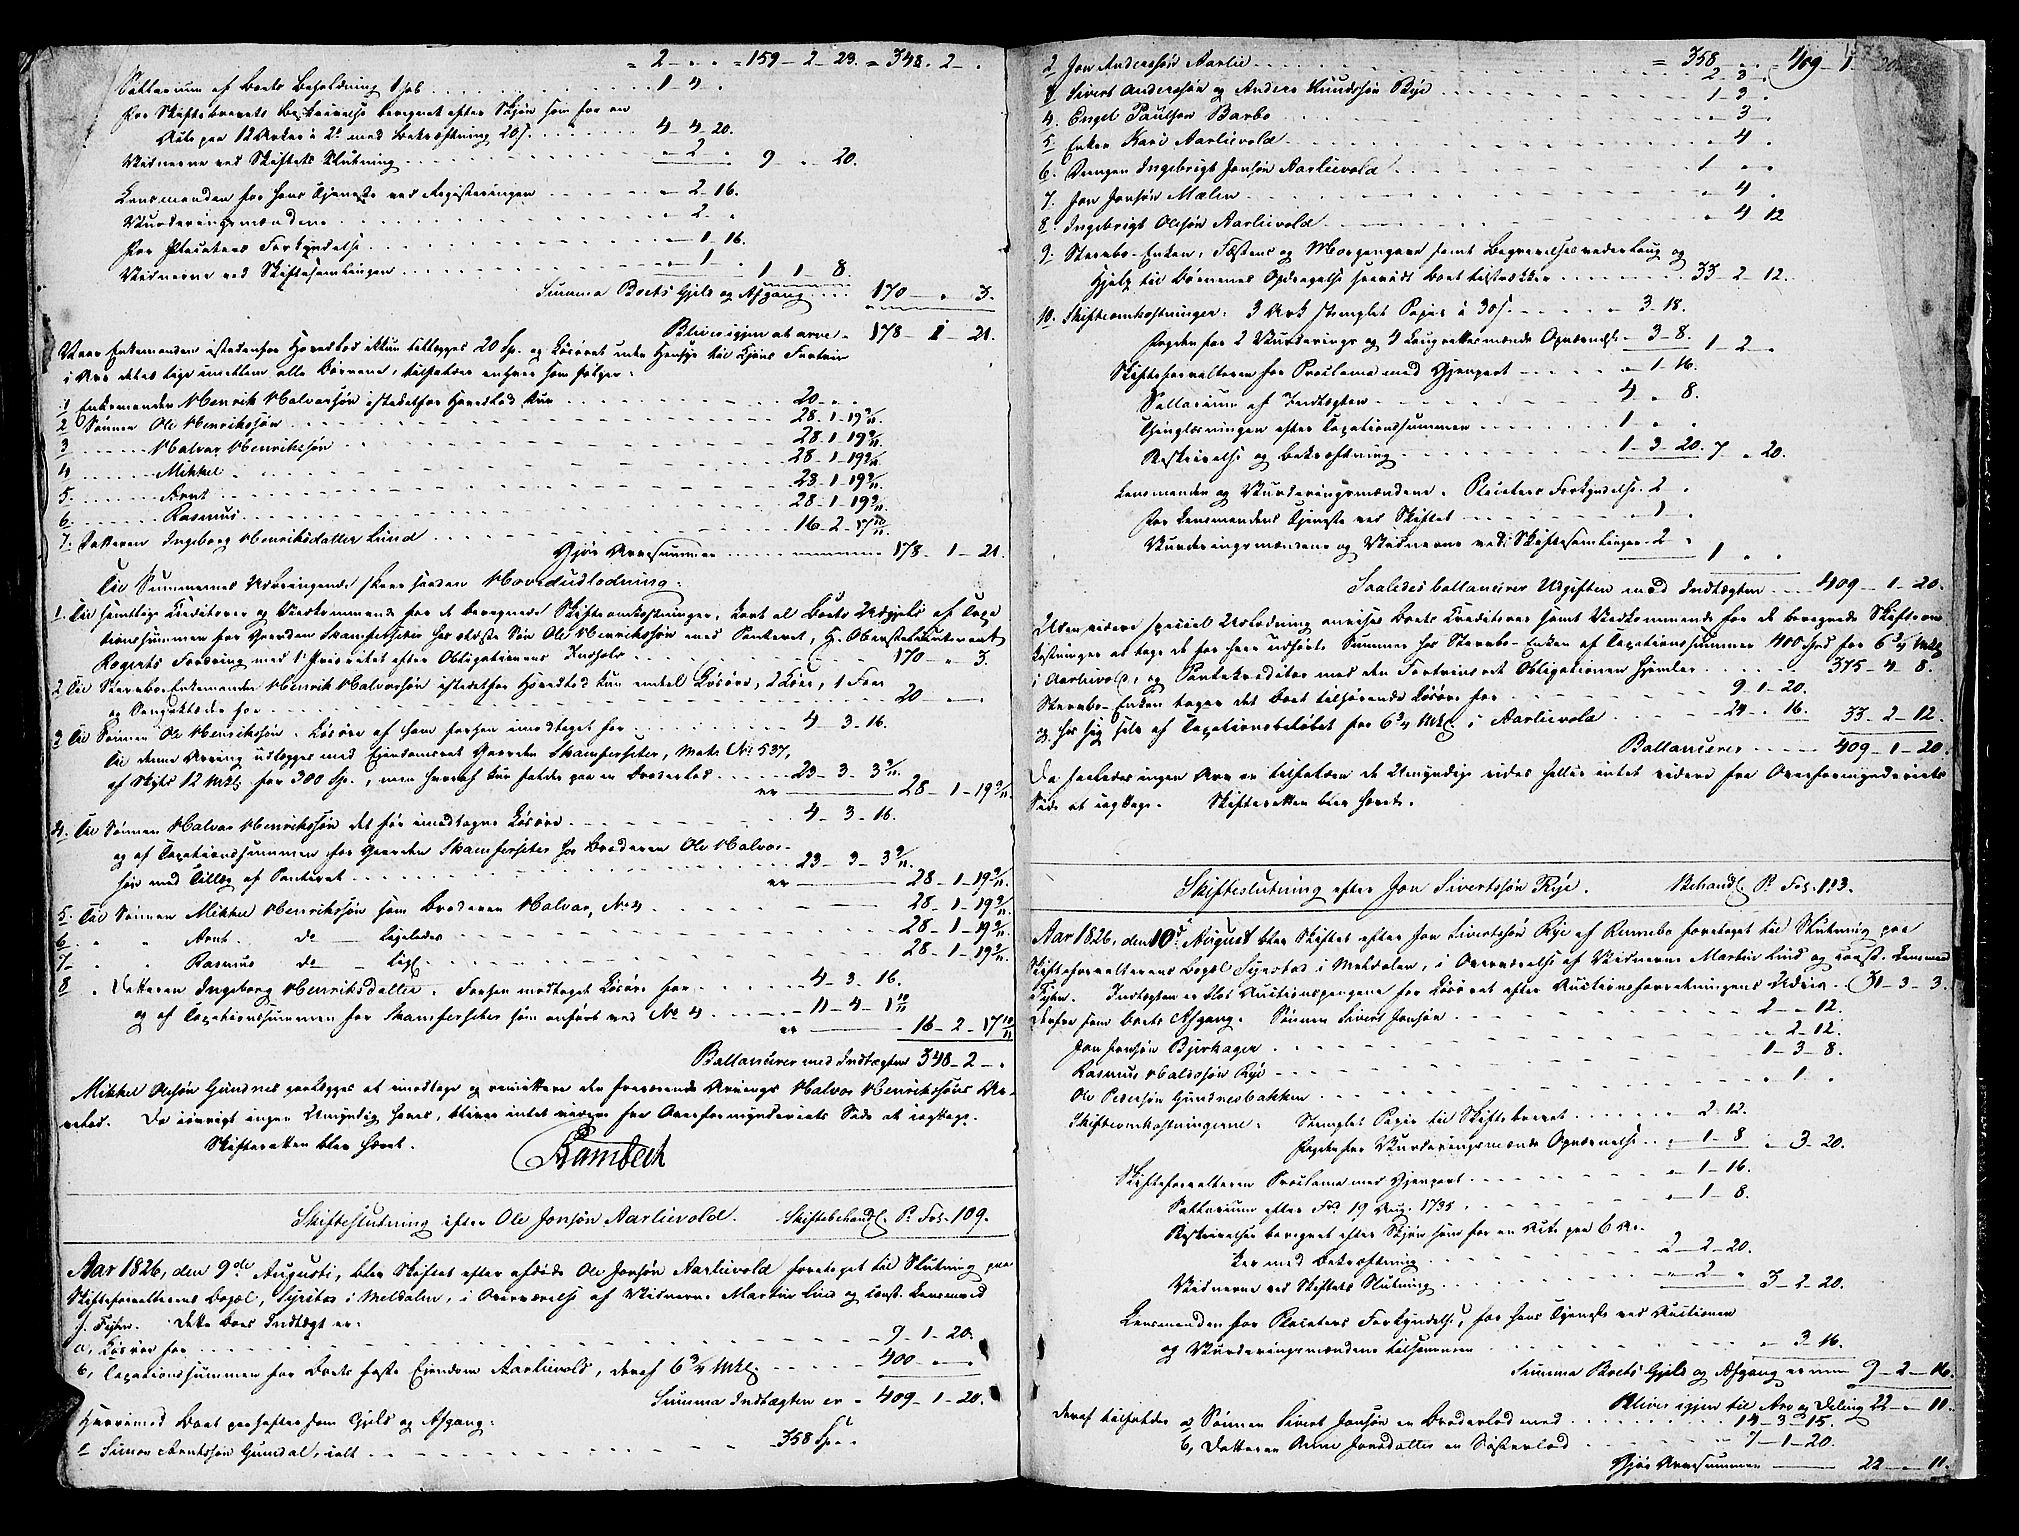 = 2 - „ - „ = 159 - 2 - 23. = 348. 2 - „
Sallarium af Boets Beholdning 1 job . . . 1 - 4 - „
For Skiftebrevets Beskrivelse beregnet efter Skjøn som for en
Acte paa 12 Arker à 2 med Bekræftning 20 s. . . . 4 - 4 - 20.
Vidnerne ved Skiftets Slutning . . . „ - 2 - „ 9 „ 20.
Lensmanden for hans Tjeneste ved Registeringen . . . „ - 2 - 16.
Vurderingsmændene . . . „ - 2 - „
For Placatens Forkyndelse . . . „ - 1 - 16.
Vidnerne ved Skiftesamlingen . . . „ - 1 - „ 1 - 1 - 8.
Summa Boets Gjeld og Afgang . . . 170 - „ - 3.
Bliver igjen at arve . 178 - 1 - 21.
Naar Enkemanden istedenfor Hovedlod ikkun tillægges 20 Sp. og Løsøret uden Hensyn til Kjøns Fortrin
i Arv deles lige imellem alle Børnene, tilfalder enhver som følger:
1 Enkemanden Henrik Halvorsøn istedetfor Hovedlod kun . . . 20 - „ - „
2 Sønnen Ole Henriksøn . . . 28 - 1 - 19 9/11.
3 . . . Halvor Henriksøn . . . 28 - 1 - 19 9/11.
4 . . . Mikkel . . . 28 - 1 - 19 9/11
5. . . . Arnt . . . 28 - 1 - 19 9/11.
6. . . . Rasmus . . . 28 - 1 - 19 9/11.
7. Datteren Ingeborg Henriksdatter Lund . . . 16 - 2 - 17 10/11.
Gjør Arvesummen . . . 178 - 1 - 21.
Til Summernes Udbringende skeer saadan Hovedudlodning:
1. Til samtlige Creditorer og Vedkommende for de beregnede Skifteomkostninger, kort al Boets Udgivt af Taxa
tionssummen for Gaarden Skamfersetter hos ældste Søn Ole Henriksøn med Panteret, H. Oberstelieutenant
Rogerts Fordring med 1 Prioritet efter Obligationens Indhold . . . 170 - „ - 3.
2 Til Stervbo-Enkemanden Henrik Halvorsøn istedetfor Hovedlod kun endeel Løsøre, 2 Kiør, 1 Faar
og Sengeklæder for . . . 20 - „ - „
3 Til Sønnen Ole Henriksøn. Løsøre af ham forhen imodtaget for . . . 4 - 3 - 16.
Til denne Arving udlægges med Eiendomsret Gaarden Skamfersetter, Matr. No 537,
af Skyld 12 Mkl for 300 Sp., men heraf kun falder paa en Broderlod . . . 23 - 3 - 3 9/11.
er 28 - 1 - 19 9/11.
4. Til Sønnen Halvor Henriksøn det før imodtagne Løsøre . . . 4 - 3 - 16.
og af Taxationssummen for Gaarden Skamfersetter hos Broderen Ole Halvor-
søn med Tillæg af Panteret . . . 23 - 3 - 3 9/11.
er 28 - 1 - 19 9/11.
5. Til Sønnen Mikkel Henriksøn som Broderen Halvor, No 4 . . . 28 - 1 - 19 9/11.
6 „ „ Arnt. do - ligeledes . . . 28 - 1 - 19 9/11.
7 - „ „ Rasmus do - ligl. . . . 28 - 1 - 19 9/11
8 „ Datteren Ingeborg Henriksdatter. Forhen modtaget Løsøre for . . . 4 - 3 - 16.
og af Taxationssummen for Skamfersetter som anført ved No 4 . . . 11 - 4 - 1 10/11
er 16 - 2 - 17 10/11
Ballancerer med Indtægten 348 - 2 - „
Mikkel Olesøn Gundnes paalægges at imodtage og remittere den fraværende Arving Halvor Henriksøns Ar-
velod. Da iøvrigt ingen Umyndig haves, bliver intet videre fra Overformynderiets Side at iagttage.
Skifteretten blev hævet.
Rambech
Skifteslutning efter Ole Jonsøn Aarlievold. Skiftebehandl. P. Fol. 109.
Aar 1826, den 9de Augusti, blev Skiftet efter afdøde Ole Jonsøn Aarlievold foretaget til Slutning paa
Skifteforvalterens Bopæl, Syrstad i Meldalen, i Overværelse af Vidnerne Martin Lind og const. Lensmand
J. Fejhn. Dette Boes Indtægt er:
a, Løsøre for . . . 9 - 1 - 20.
b, Taxationssummen for Boets faste Eiendom Aarlievold, deraf 6 3/4 Mkl. . . . 400 - „ - „
Summa Indtægten er - 409 - 1 - 20.
Hvorimod Boet paahefter som Gjeld og Afgang:
1 Simon Arntssøn Gumdal, ialt . . . 358 Sp. „
2 Jon Anderssøn Aarlie . . . = 358 - „ - „ 409 - 1 - 20.
3 Sivert Anderssøn og Anders Knudssøn Rye . . . 2 - 3 - „
4. Engel Paulsøn Barbo . . . 1 - 3 „
5 Enken Kari Aarlievold . . . „ - 3 - „
6. Drengen Ingebrigt Jonsøn Aarlievold . . . „ 4 „
7. Jon Jonsøn Mælen . . . 1 - „ „
8. Ingebrigt Olesøn Aarlievold . . . „ 4 12
9. Stervbo-Enken, Fæstens og Morgengave samt Begravelsesvederlaug og
Hjelp til Børnenes Opdragelse saavidt Boet tilstrækker . . . 33 - 2 - 12.
10. Skifteomkostninger: 3 Ark stemplet Papir à 30 s. . . . „ 3 - 18.
Papir for 2 Vurderings og 4 Laugrettesmænds Opnævnelse . „ - 3 - 8. 1 - 2 - „
Skifteforvalteren for Proclama med Gjenpart . . . „ - 1 - 16.
Sallarium af Indtægten . . . 4 „ 8.
Thinglæsningen efter Taxationssummen . . . 1 - „ „
Beskrivelse og Bekræftning . . . 1 - 3 - 20. 7 „ 20.
Lensmanden og Vurderingsmændene. Placatens Forkyndelse . 2 „
For Lensmandens Tjeneste ved Skiftet . . . „ 1 „
Vurderingsmændene og Vidnerne ved Skiftesamlingen . 2 „ 1 „ „
Saaledes ballancerer Udgiften med Indtægten . . . 409 - 1 - 20.
Uden videre special Udlodning anvises Boets Kreditorer samt Vedkommende for de beregnede Skifteom
kostninger at tage de for hver udførte Summer hos Stervbo-Enken af Taxationssummen 400 Spd for 6 3/4 Mkl
i Aarlievold, og Pantekreditor med den Fortrinsret Obligationen hjemler . . . 375 - 4 - 8.
Stervbo-Enken tager det Boet tilhørende Løsøre for . . . 9 - 1 - 20.
og hos sig selv af Taxationsbeløbet for 6 3/4 Mkl i Aarlievold . . . 24 - „ 16. 33 - 2 - 12.
Ballancerer . . . 409 - 1 - 20.
Da saaledes ingen Arv er tilfalden de Umyndige vides heller intet videre fra Overformynderiets
Side at iagttage. Skifteretten blev hævet.
Skifteslutning efter Jon Sivertssøn Rye. Behandl. P. Fol. 113.
Aar 1826, den 10de August blev Skiftet efter Jon Sivertssøn Rye af Rennebo foretaget til Slutning paa
Skifteforvalterens Bopæl Syrstad i Meldalen, i Overværelse af Vidnerne Martin Lind og const. Lensmand
Fejhn. Indtægten er blot Auctionspengene for Løsøret efter Auctionsforretningens Udviis . 31 - 3 - 3.
Derfra som Boets Afgang. Sønnen Sivert Jonsøn . . . 2 - „ 12.
Jon Jonsøn Bjerkager . . . „ 2 - 12.
Rasmus Haldosøn Rye . . . 1 - 3 - 8.
Ole Pedersøn Gundnesbakken . . . „ 1 „
Skifteomkostningerne. Stemplet Papir til Skiftebrevet . . . „ 2 - 12.
Papir for Vurderingsmænds Opnævnelse . . „ - 1 - 8 „ 3 - 20.
Skifteforvalteren Proclama med Gjenpart . . . „ - 1 - 16.
Sallarium efter Frd. 19 Aug. 1735 . . . „ - 1 - 8.
Beskrivelse beregnet efter Skjøn som for en Acte paa 6 Ar-
ker med Bekræftning . . . 2 - 2 - 20.
Vidnerne ved Skiftets Slutning . . . „ - 2 - „ 3 - 2 - 20.
Lensmanden for Placatens Forkyndelse, for hans Tjeneste ved Auctionen
og Vurderingsmændene tilsammen . . . „ 3 16.
Summa Boets Gjeld og Afgang er nu 9 - 2 - 16.
Bliver igjen til Arv og Deling 22 „ 11.
Deraf tilfalder a, Sønnen Sivert Jonsøn en Broderlod med . . . 14 - 3 - 15.
b, Datteren Anne Jonsdatter en Søsterlod . . . 7 - 1 - 20.
Gjør Arvesummen . . . 22 - „ 11.